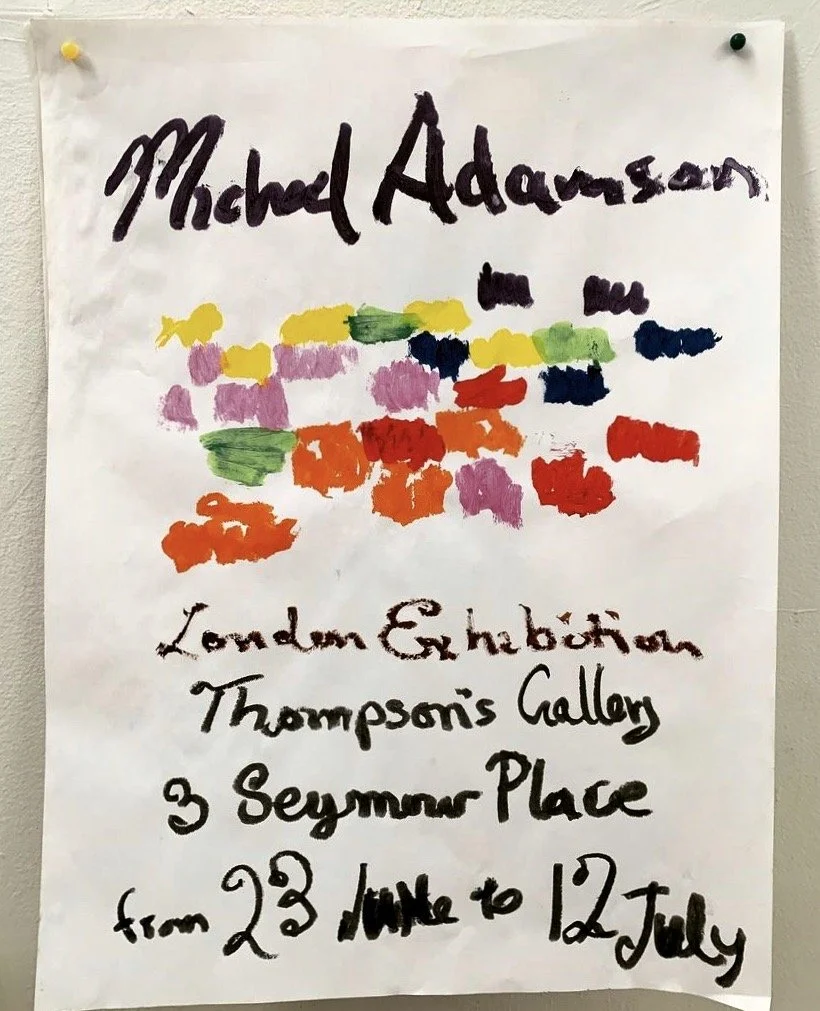 Michael Adamson
London Exhibition
Thompson's Gallery
3 Seymour Place
from 23 June to 12 July